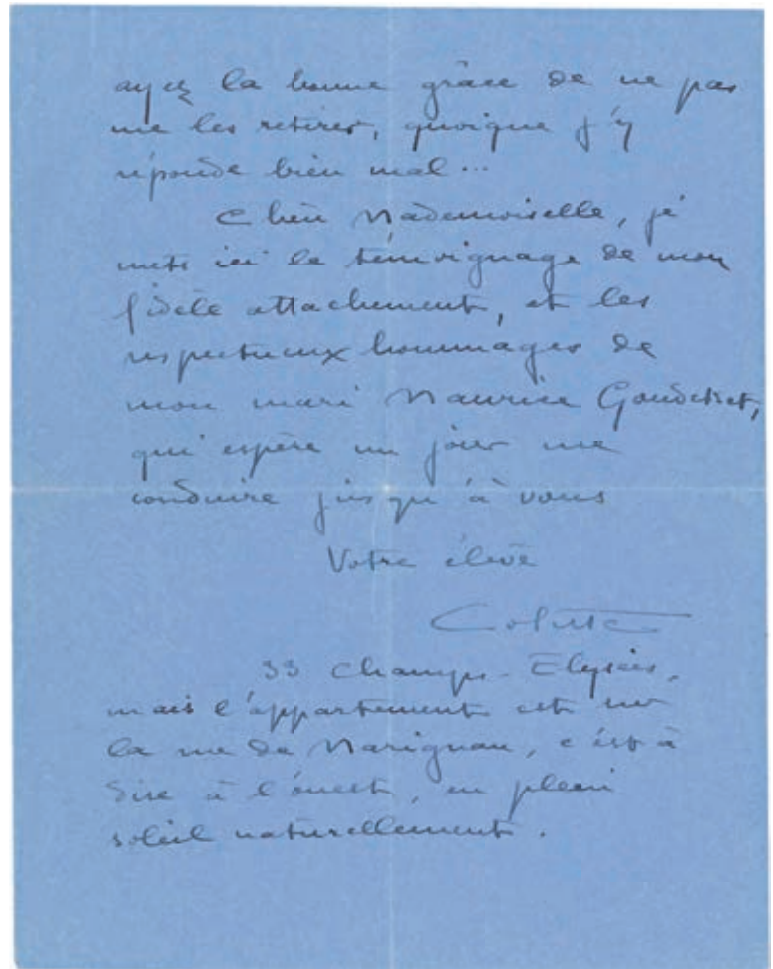 ayez la bonne grâce de ne pas
me les retirer, quoique j'y
réponde bien mal...
Chère Mademoiselle, je
mets ici le témoignage de mon
fidèle attachement, et les
respectueux hommages de
mon mari Maurice Goudeket,
qui espère un jour me
conduire jusqu'à vous
Votre élève
Colette
33 Champs-Elysées,
mais l'appartement est sur
la rue de Marignan, c'est à
dire à l'ouest, en plein
soleil naturellement.